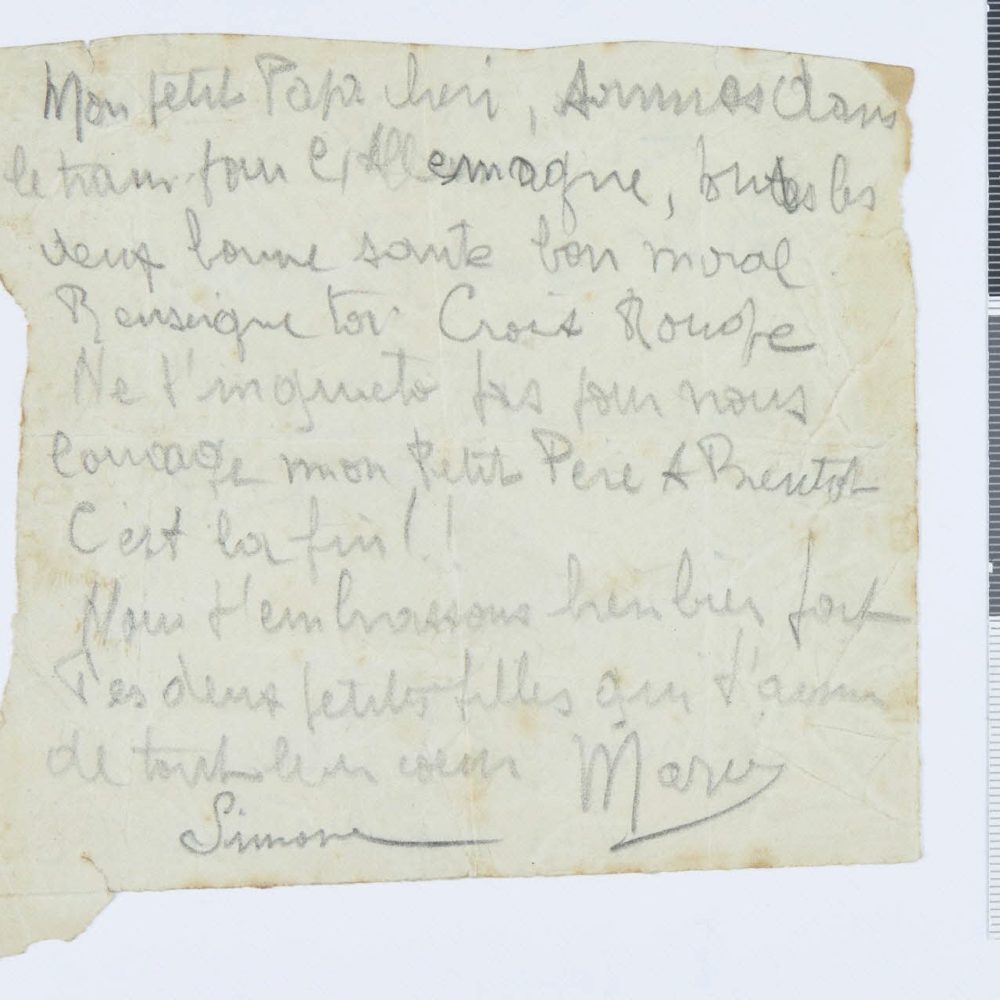 Mon petit Papa cheri, sommes dans
le train pour l'Allemagne, toutes les
deux bonne sante bon moral
Renseigne toi Croix Rouge
Ne t'inquiete pas pour nous
courage mon Petit Père A Bientot
C'est la fin!!
Nous t'embrassons bien bien fort
Tes deux petites filles qui t'aime
de tout leur coeur Marie
Simone